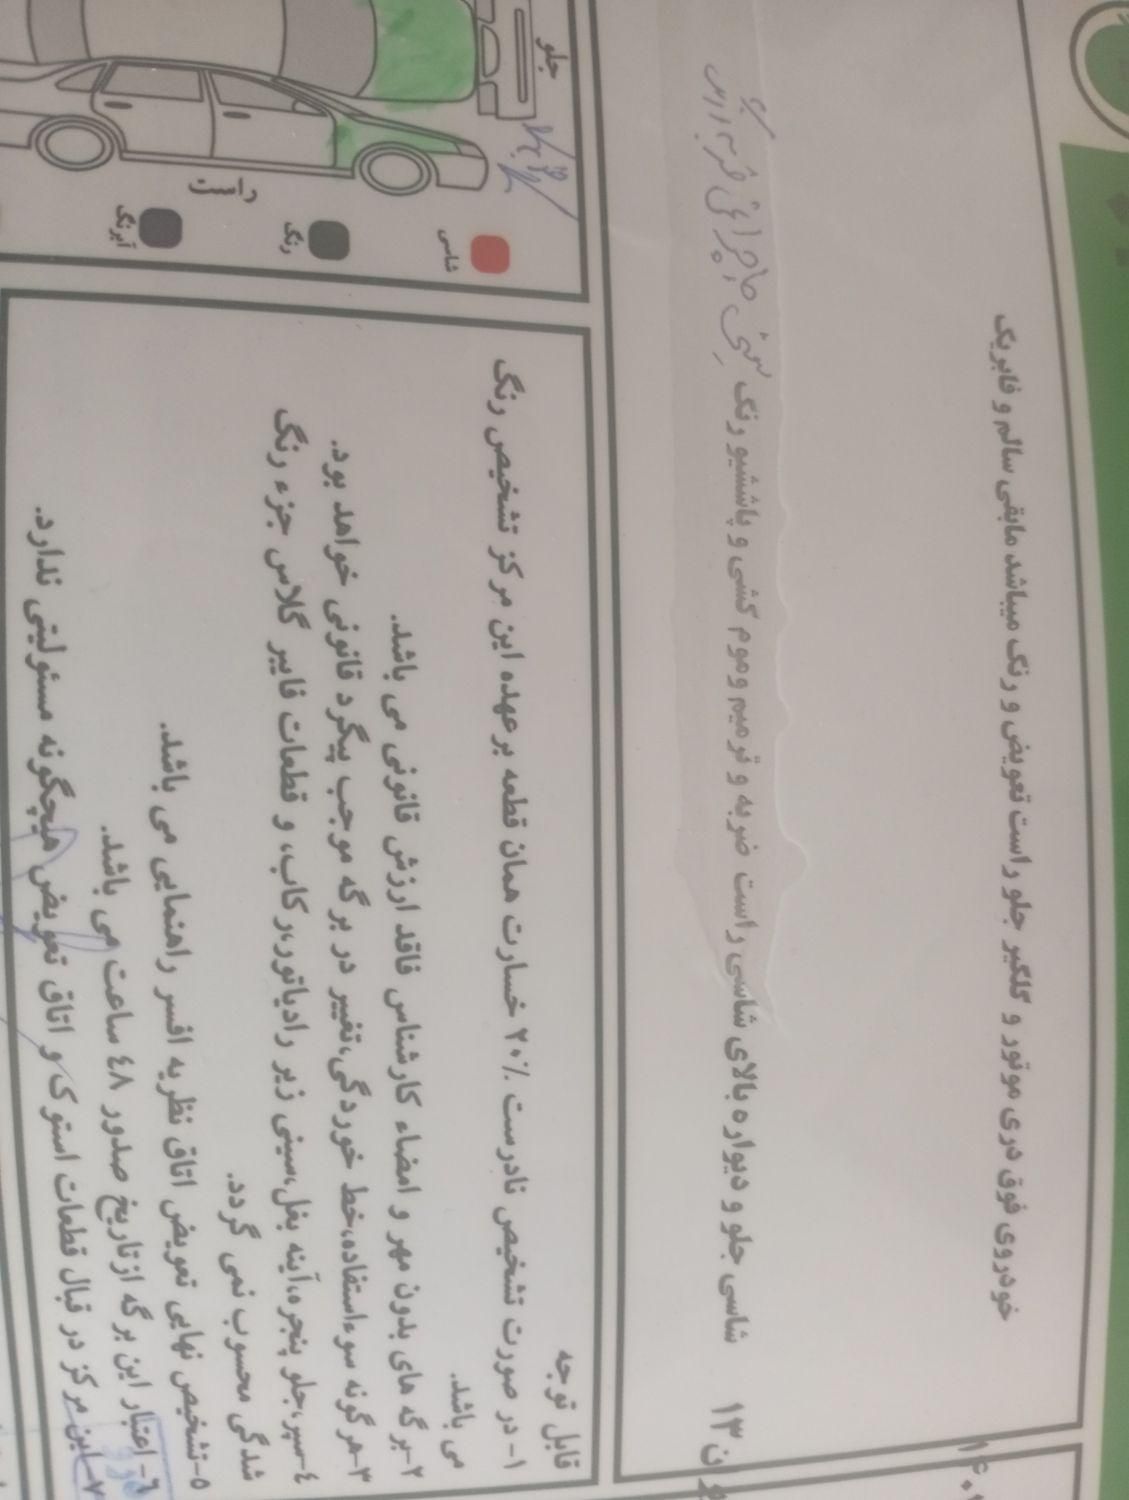 خودروی فوق دری موتور و گلگیر جلو راست تعویض و رنگ میباشد مابقی سالم و فابریک
شاسی جلو و دیواره بالای شاسی راست ضربه و ترمیم وموم کشی و پاششیو رنگ
ن ۱۳
جلو
راست
شاسی
رنگ
آبرنگ
قابل توجه
۱- در صورت تشخیص نادرست ۲۰٪ خسارت همان قطعه برعهده این مرکز تشخیص رنگ
می باشد.
۲-برگه های بدون مهر و امضاء کارشناس فاقد ارزش قانونی می باشد.
۳-هرگونه سوءاستفاده،خط خوردگی،تغییر در برگه موجب پیگرد قانونی خواهد بود.
٤-سپر،جلو پنجره،آینه بغل،سینی زیر رادیاتور،رکاب، و قطعات فایبر گلاس جزء رنگ
شدگی محسوب نمی گردد.
۵-تشخیص نهایی تعویض اتاق نظریه افسر راهنمایی می باشد.
٦- اعتبار این برگه از تاریخ صدور ٤۸ ساعت می باشد.
۷-این مرکز در قبال قطعات استوک و اتاق تعویض هیچگونه مسئولیتی ندارد.